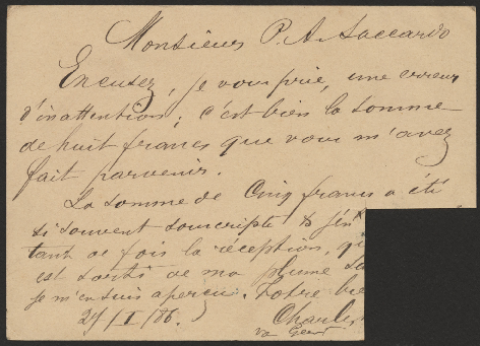 Monsieur P. A. Saccardo
Excusez, je vous prie, une erreur
d'inattention; c'est bien la somme
de huit francs que vous m'avez
fait parvenir.
La somme de Cinq francs a été
si souvent souscripte &
tant de fois la réception, qu
est sortie de ma plume sa
je m'en suis aperçu. Votre bie
Charles